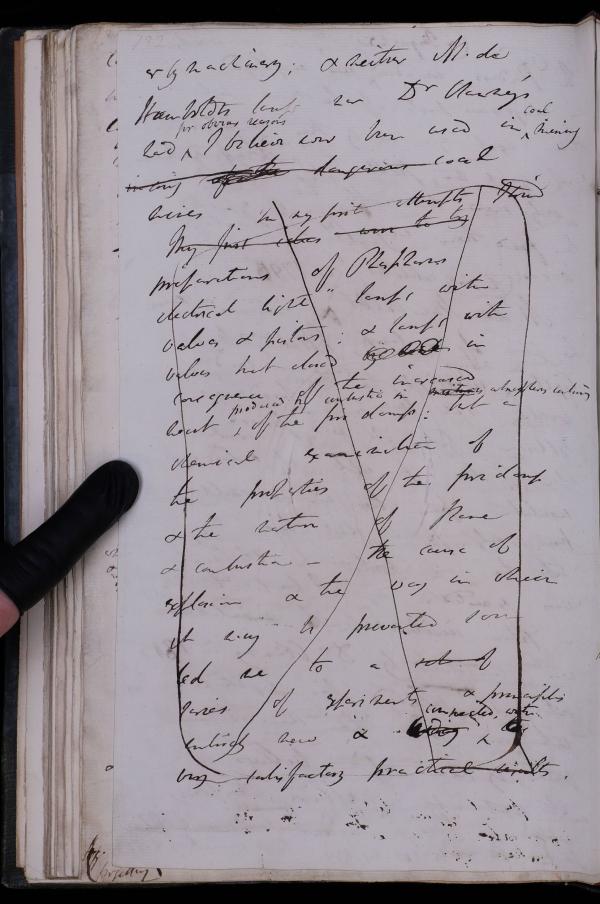 or by machinery; & neither M. de
Humboldts lamp nor Dr Clanny's
had for obvious reasons I believe ever been used in coal mining
in any of the dangerous coal
mines In my first attempts I tried
My first ideas were to try
preparations of Phosphorus
electrical light lamps with
valves & pistons: & lamps with
valves that closed in
consequence of the increased
heat produced by combustion in atmosphere containing
of the fire damp: but a
chemical examination of
the properties of the fire damp
& the nature of flame
& combustion – the cause of
explosion & the way in which
it may be prevented soon
led me to a set of
series of experiments & principles
entirely new & connected with
very satisfactory practical results.